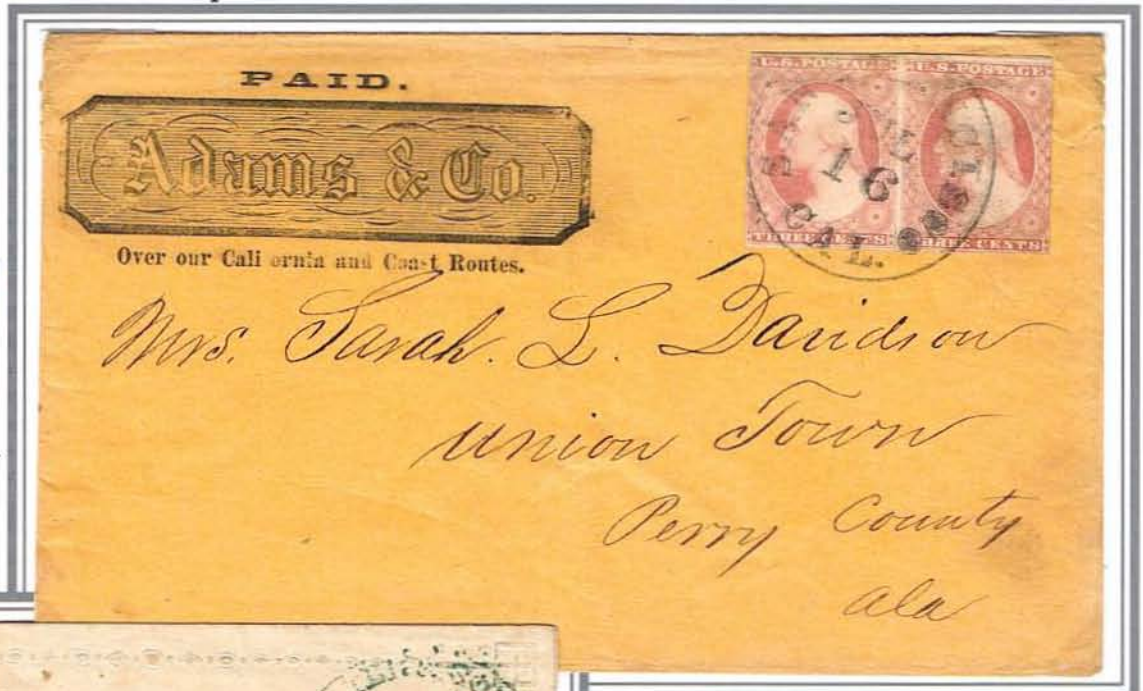 PAID.
Adams & Co.
Over our Cali ornia and Coast Routes.
U.S. POSTAGE U.S. POSTAGE
16
CAL.
THREE CENTS THREE CENTS
Mrs. Sarah. L. Davidson
Union Town
Perry County
Ala